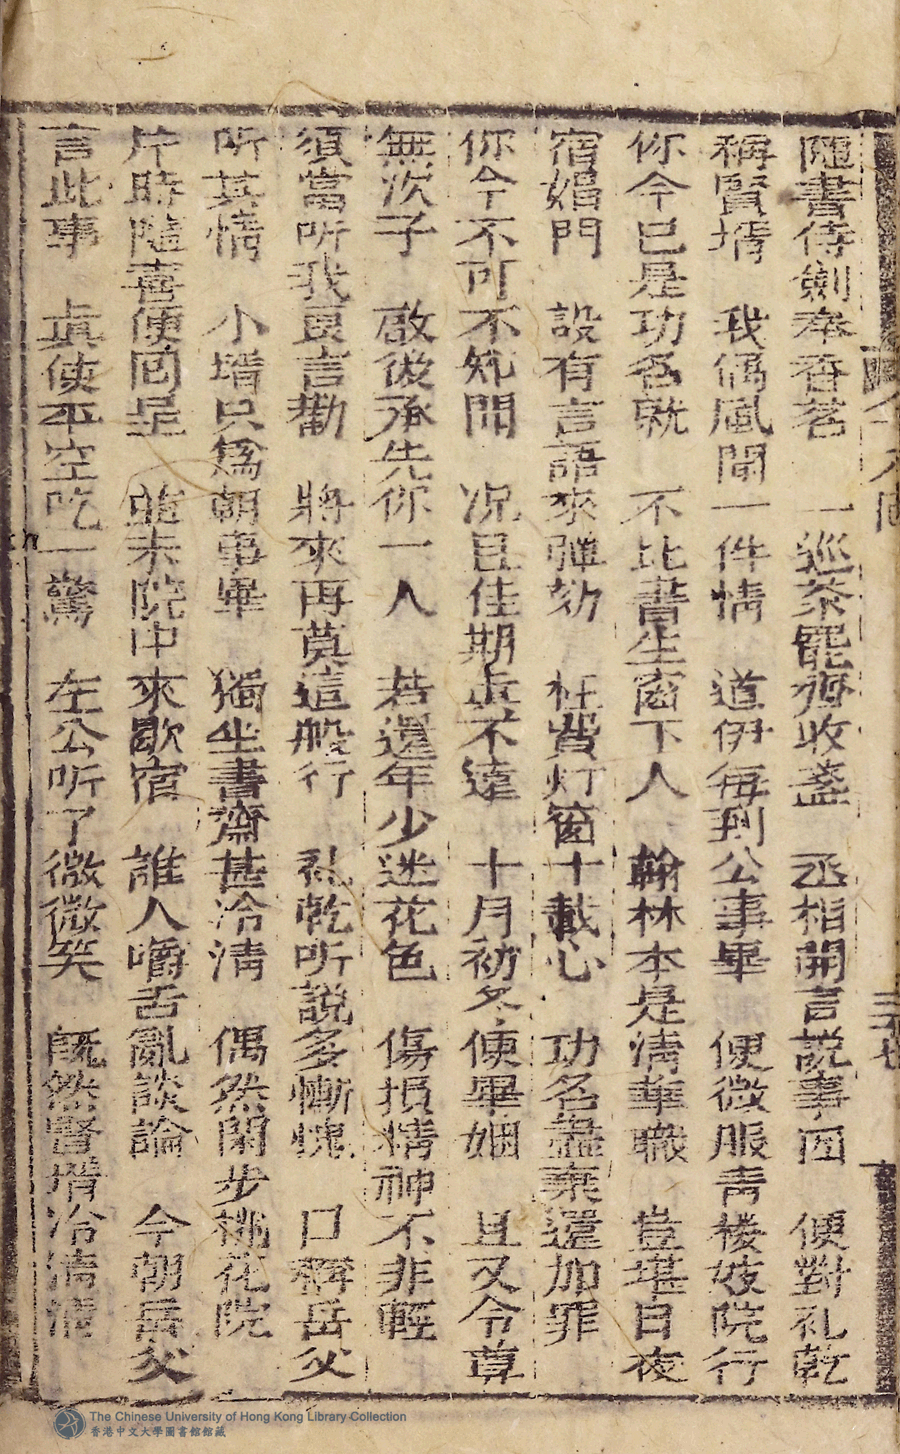 隨書侍劍奉香茗　一巡茶罷齊收盞　丞相開言說事因　便對礼乾
稱賢壻　我偶風聞一件情　道伊每到公事畢　便微服青楼妓院行
你今已是功名就　不比書生窗下人　翰林本是清華職　豈堪日夜
宿娼門　設有言語來彈劾　枉費灯窗十載心　功名盡棄還加罪
你今不可不知聞　况且佳期真不遠　十月初冬便畢姻　且又令尊
無次子　啟後承先你一人　若還年少迷花色　傷損精神不非輕
須當听我良言勸　將來再莫這般行　礼乾听說多慚愧　口稱岳父
听其情　小壻只為朝事畢　獨坐書齋甚冷清　偶然閑步桃花院
片時隨喜便回呈　並未院中來歇宿　誰人嚼舌亂談論　今朝岳父
言此事　真使平空吃一驚　左公听了微微笑　既然賢壻冷清清
The Chinese University of Hong Kong Library Collection
香港中文大學圖書館館藏